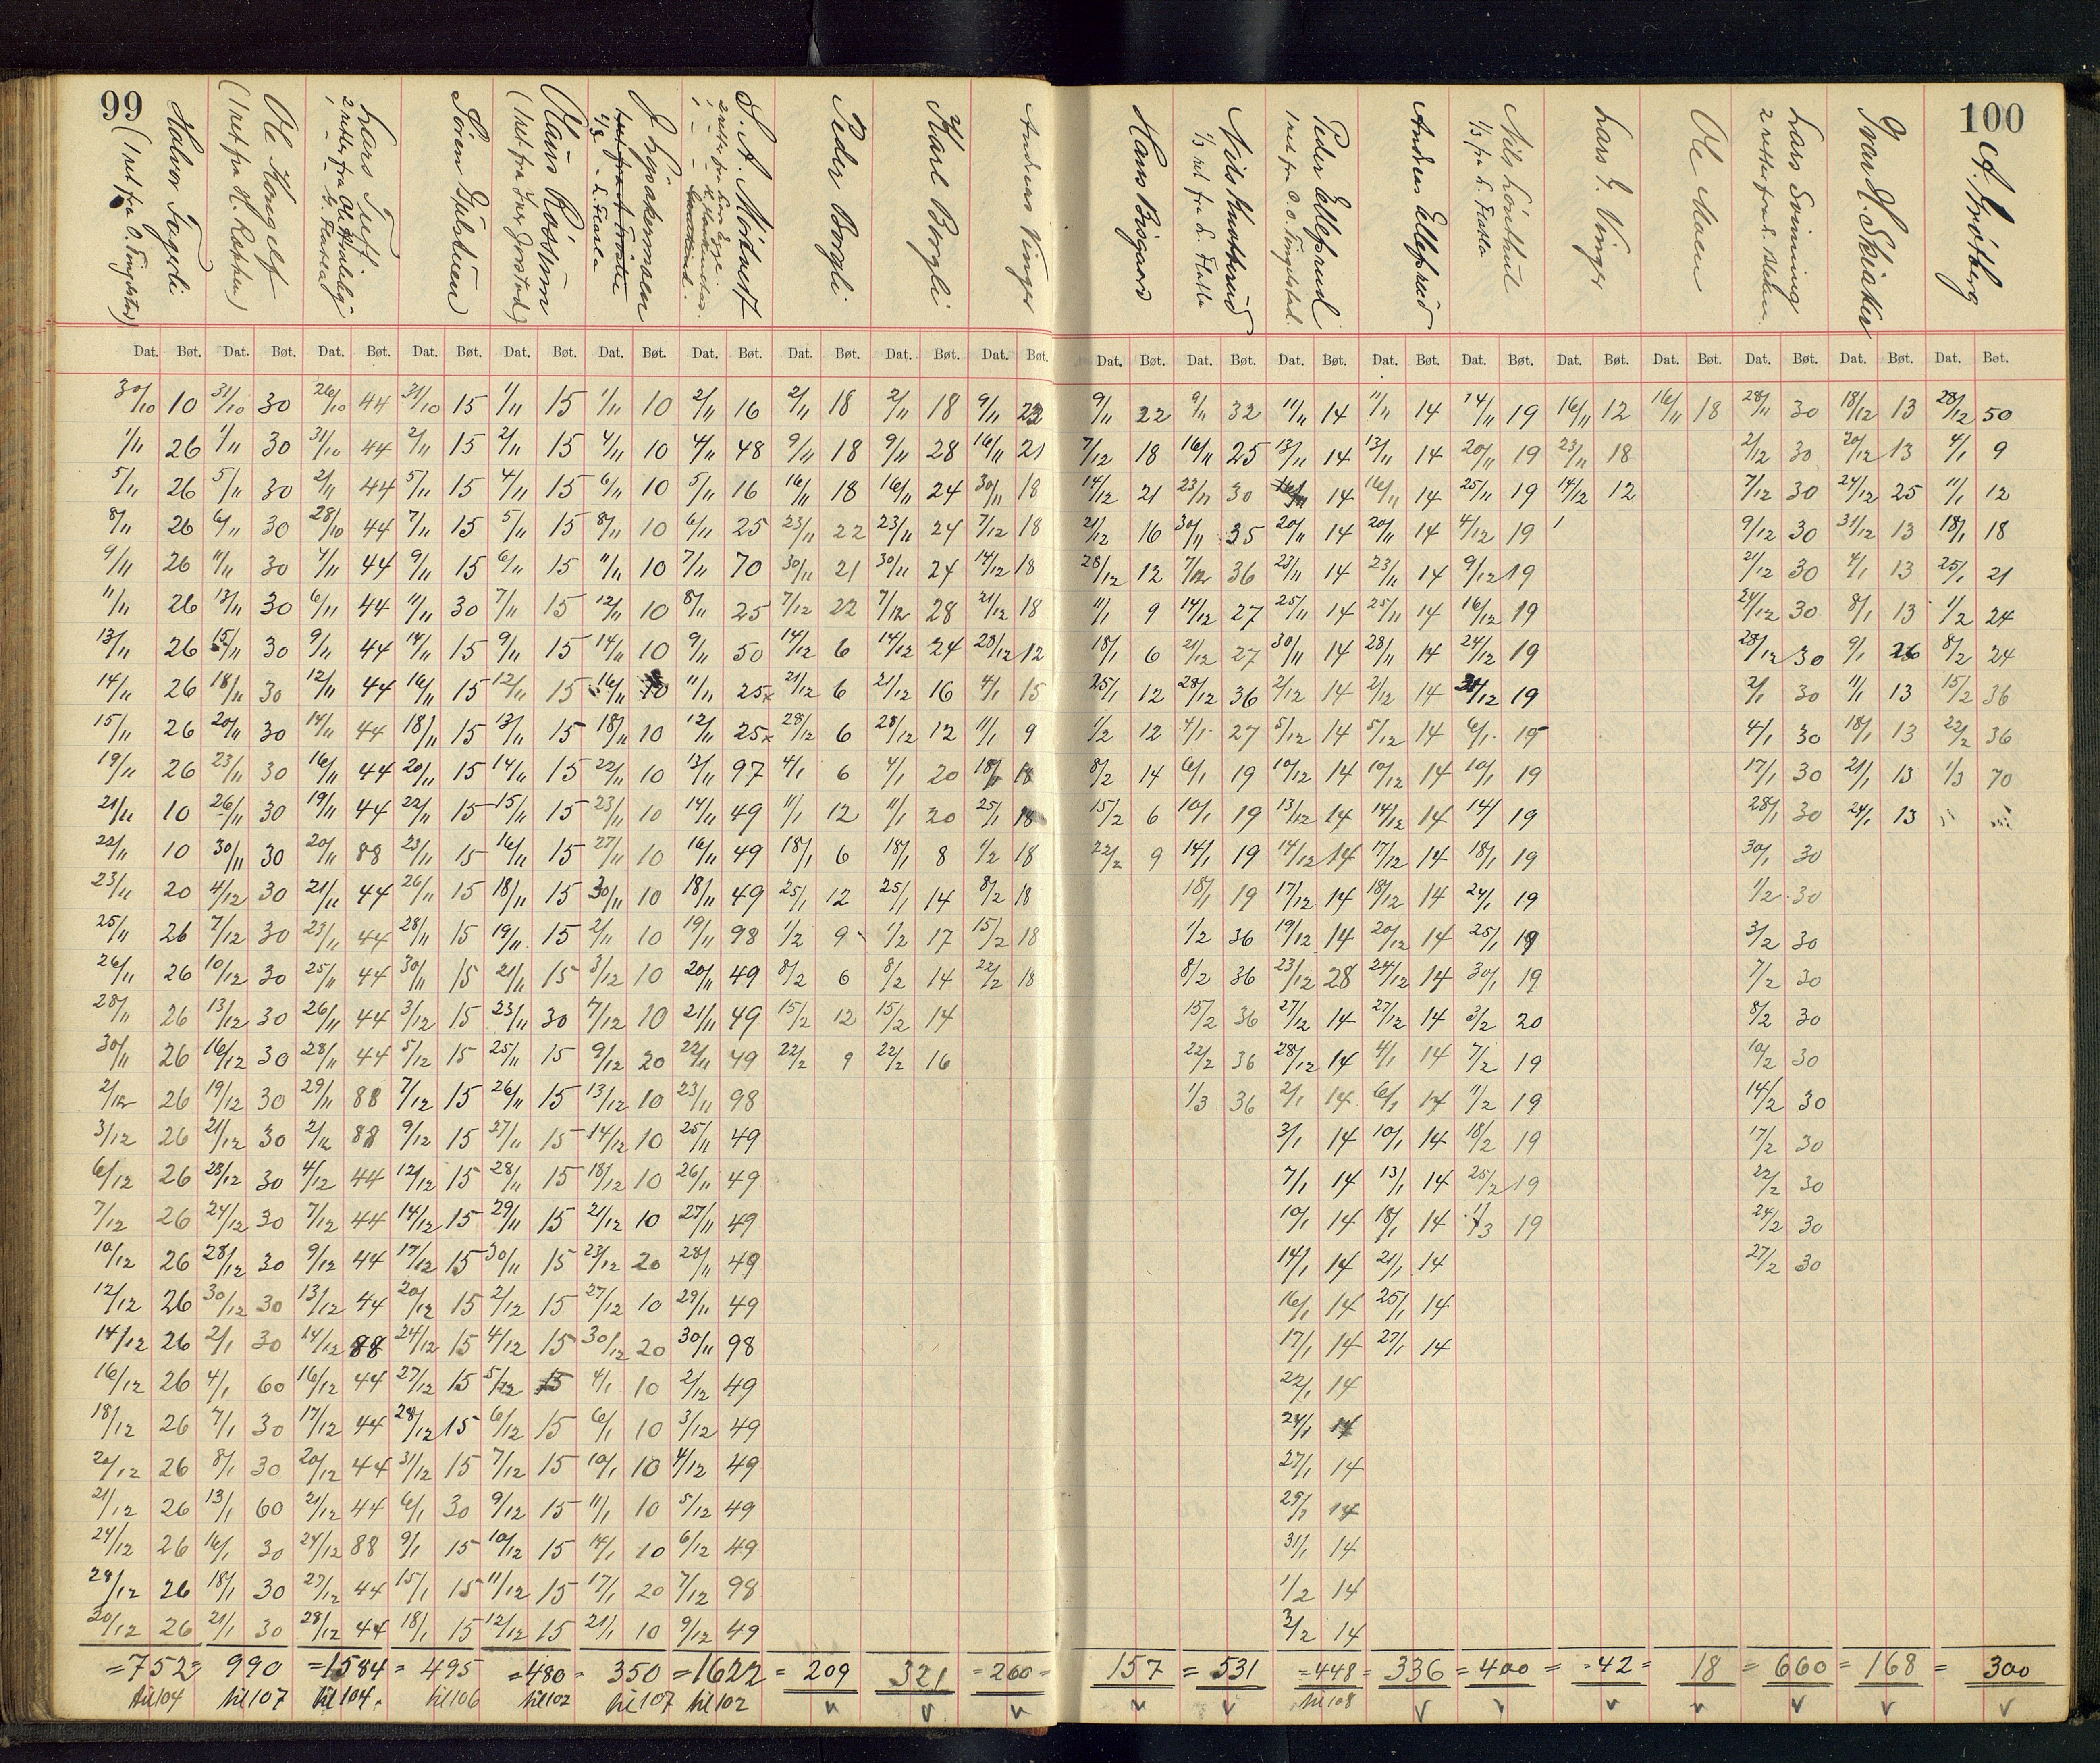 99
100
Halvor Fageli
Ole Kongelf
(1 ret fra H. Raphes)
Lars Tuft
Sören Gulstuen
Olaus Rössum
S. A. Mörtvedt
Peder Borgli
Karl Borgli
Andreas Vinger
Hans Bisgaard
Nils Knatterud
1/3 ret fra L. Flatla
Peder Ellefsrud
Andreas Ellefsrud
Nils Lönhaug
1/3 fra L. Flatla
Lars G. Vinger
Ole Moen
Lars Svinning
Ivar H. Skiaker
A. Bröttberg
Dat. Bøt. Dat. Bøt. Dat. Bøt. Dat. Bøt. Dat. Bøt. Dat. Bøt. Dat. Bøt. Dat. Bøt. Dat. Bøt. Dat. Bøt. Dat. Bøt. Dat. Bøt. Dat. Bøt. Dat. Bøt. Dat. Bøt. Dat. Bøt. Dat. Bøt. Dat. Bøt. Dat. Bøt. Dat. Bøt.
30/10 10 31/10 30 26/10 44 31/10 15 1/11 15 1/11 10 2/11 16 2/11 18 2/11 18 9/11 22 9/11 22 9/11 32 11/11 14 11/11 14 14/11 19 16/11 12 16/11 18 28/11 30 18/12 13 28/12 50
1/11 26 1/11 30 31/10 44 2/11 15 2/11 15 4/11 10 4/11 48 9/11 18 9/11 28 16/11 21 7/12 18 16/11 25 13/11 14 13/11 14 20/11 19 23/11 18 2/12 30 20/12 13 4/1 9
5/11 26 5/11 30 2/11 44 5/11 15 4/11 15 6/11 10 5/11 16 16/11 18 16/11 24 30/11 18 14/12 21 23/11 30 16/11 14 16/11 14 25/11 19 14/12 12 7/12 30 24/12 25 11/1 12
8/11 26 6/11 30 28/10 44 7/11 15 5/11 15 8/11 10 6/11 25 23/11 22 23/11 24 7/12 18 21/12 16 30/11 35 20/11 14 20/11 14 4/12 19 9/12 30 31/12 13 18/1 18
9/11 26 11/11 30 4/11 44 9/11 15 6/11 15 11/11 10 7/11 70 30/11 21 30/11 24 14/12 18 28/12 12 7/12 36 23/11 14 23/11 14 9/12 19 21/12 30 4/1 13 25/1 21
11/11 26 13/11 30 6/11 44 11/11 30 7/11 15 12/11 10 8/11 25 7/12 22 7/12 28 21/12 18 11/1 9 14/12 27 25/11 14 25/11 14 16/12 19 24/12 30 8/1 13 1/2 24
13/11 26 15/11 30 9/11 44 14/11 15 9/11 15 14/11 10 9/11 50 14/12 6 14/12 24 28/12 12 18/1 6 21/12 27 30/11 14 28/11 14 24/12 19 28/12 30 9/1 26 8/2 24
14/11 26 18/11 30 12/11 44 16/11 15 12/11 15 16/11 10 11/11 25x 21/12 6 21/12 16 4/1 15 25/1 12 28/12 36 2/12 14 2/12 14 31/12 19 2/1 30 11/1 13 15/2 36
15/11 26 20/11 30 14/11 44 18/11 15 13/11 15 18/11 10 12/11 25x 28/12 6 28/12 12 11/1 9 1/2 12 4/1 27 5/12 14 5/12 14 6/1 19 4/1 30 18/1 13 22/2 36
19/11 26 23/11 30 16/11 44 20/11 15 14/11 15 22/11 10 13/11 97 4/1 6 4/1 20 18/1 18 8/2 14 6/1 19 10/12 14 10/12 14 10/1 19 17/1 30 21/1 13 1/3 70
21/11 10 26/11 30 19/11 44 22/11 15 15/11 15 23/11 10 14/11 49 11/1 12 11/1 20 25/1 18 15/2 6 10/1 19 13/12 14 14/12 14 14/1 19 28/1 30 24/1 13
22/11 10 30/11 30 20/11 88 23/11 15 16/11 15 27/11 10 16/11 49 18/1 6 18/1 8 1/2 18 22/2 9 14/1 19 14/12 14 17/12 14 18/1 19 30/1 30
23/11 20 4/12 30 21/11 44 26/11 15 18/11 15 30/11 10 18/11 49 25/1 12 25/1 14 8/2 18 18/1 19 17/12 14 18/12 14 24/1 19 1/2 30
25/11 26 7/12 30 23/11 44 28/11 15 19/11 15 2/11 10 19/11 98 1/2 9 1/2 17 15/2 18 1/2 36 19/12 14 20/12 14 25/1 19 3/2 30
26/11 26 10/12 30 25/11 44 30/11 15 21/11 15 3/12 10 20/11 49 8/2 6 8/2 14 22/2 18 8/2 36 23/12 28 24/12 14 30/1 19 7/2 30
28/11 26 13/12 30 26/11 44 3/12 15 23/11 30 7/12 10 21/11 49 15/2 12 15/2 14 15/2 36 27/12 14 27/12 14 3/2 20 8/2 30
30/11 26 16/12 30 28/11 44 5/12 15 25/11 15 9/12 20 22/11 49 22/2 9 22/2 16 22/2 36 28/12 14 4/1 14 7/2 19 10/2 30
2/12 26 19/12 30 29/11 88 7/12 15 26/11 15 13/12 10 23/11 98 1/3 36 2/1 14 6/1 14 11/2 19 14/2 30
3/12 26 21/12 30 2/12 88 9/12 15 27/11 15 14/12 10 25/11 49 3/1 14 10/1 14 18/2 19 17/2 30
6/12 26 23/12 30 4/12 44 12/12 15 28/11 15 18/12 10 26/11 49 7/1 14 13/1 14 25/2 19 22/2 30
7/12 26 24/12 30 7/12 44 14/12 15 29/11 15 21/12 10 27/11 49 10/1 14 18/1 14 1/3 19 24/2 30
10/12 26 28/12 30 9/12 44 17/12 15 30/11 15 23/12 20 28/11 49 14/1 14 21/1 14 27/2 30
12/12 26 30/12 30 13/12 44 20/12 15 2/12 15 27/12 10 29/11 49 16/1 14 25/1 14
14/12 26 2/1 30 14/12 88 24/12 15 4/12 15 30/12 20 30/11 98 17/1 14 27/1 14
16/12 26 4/1 60 16/12 44 27/12 15 5/12 15 4/1 10 2/12 49 22/1 14
18/12 26 7/1 30 17/12 44 28/12 15 6/12 15 6/1 10 3/12 49 24/1 14
20/12 26 8/1 30 20/12 44 31/12 15 7/12 15 10/1 10 4/12 49 27/1 14
21/12 26 13/1 60 21/12 44 6/1 30 9/12 15 11/1 10 5/12 49 29/1 14
24/12 26 16/1 30 24/12 88 9/1 15 10/12 15 14/1 10 6/12 49 31/1 14
28/12 26 18/1 30 27/12 44 15/1 15 11/12 15 17/1 20 7/12 98 1/2 14
30/12 26 21/1 30 28/12 44 18/1 15 12/12 15 21/1 10 9/12 49 3/2 14
=752= 990 =1584= 495 =480= 350 =1622= 209 321 =260= 157 =531 =448= 336 =400= =42= 18 =660=168= 300
til 104 til 107 til 104. til 106 til 102 til 107 til 102 v v v v v til 108 v v v v v v v